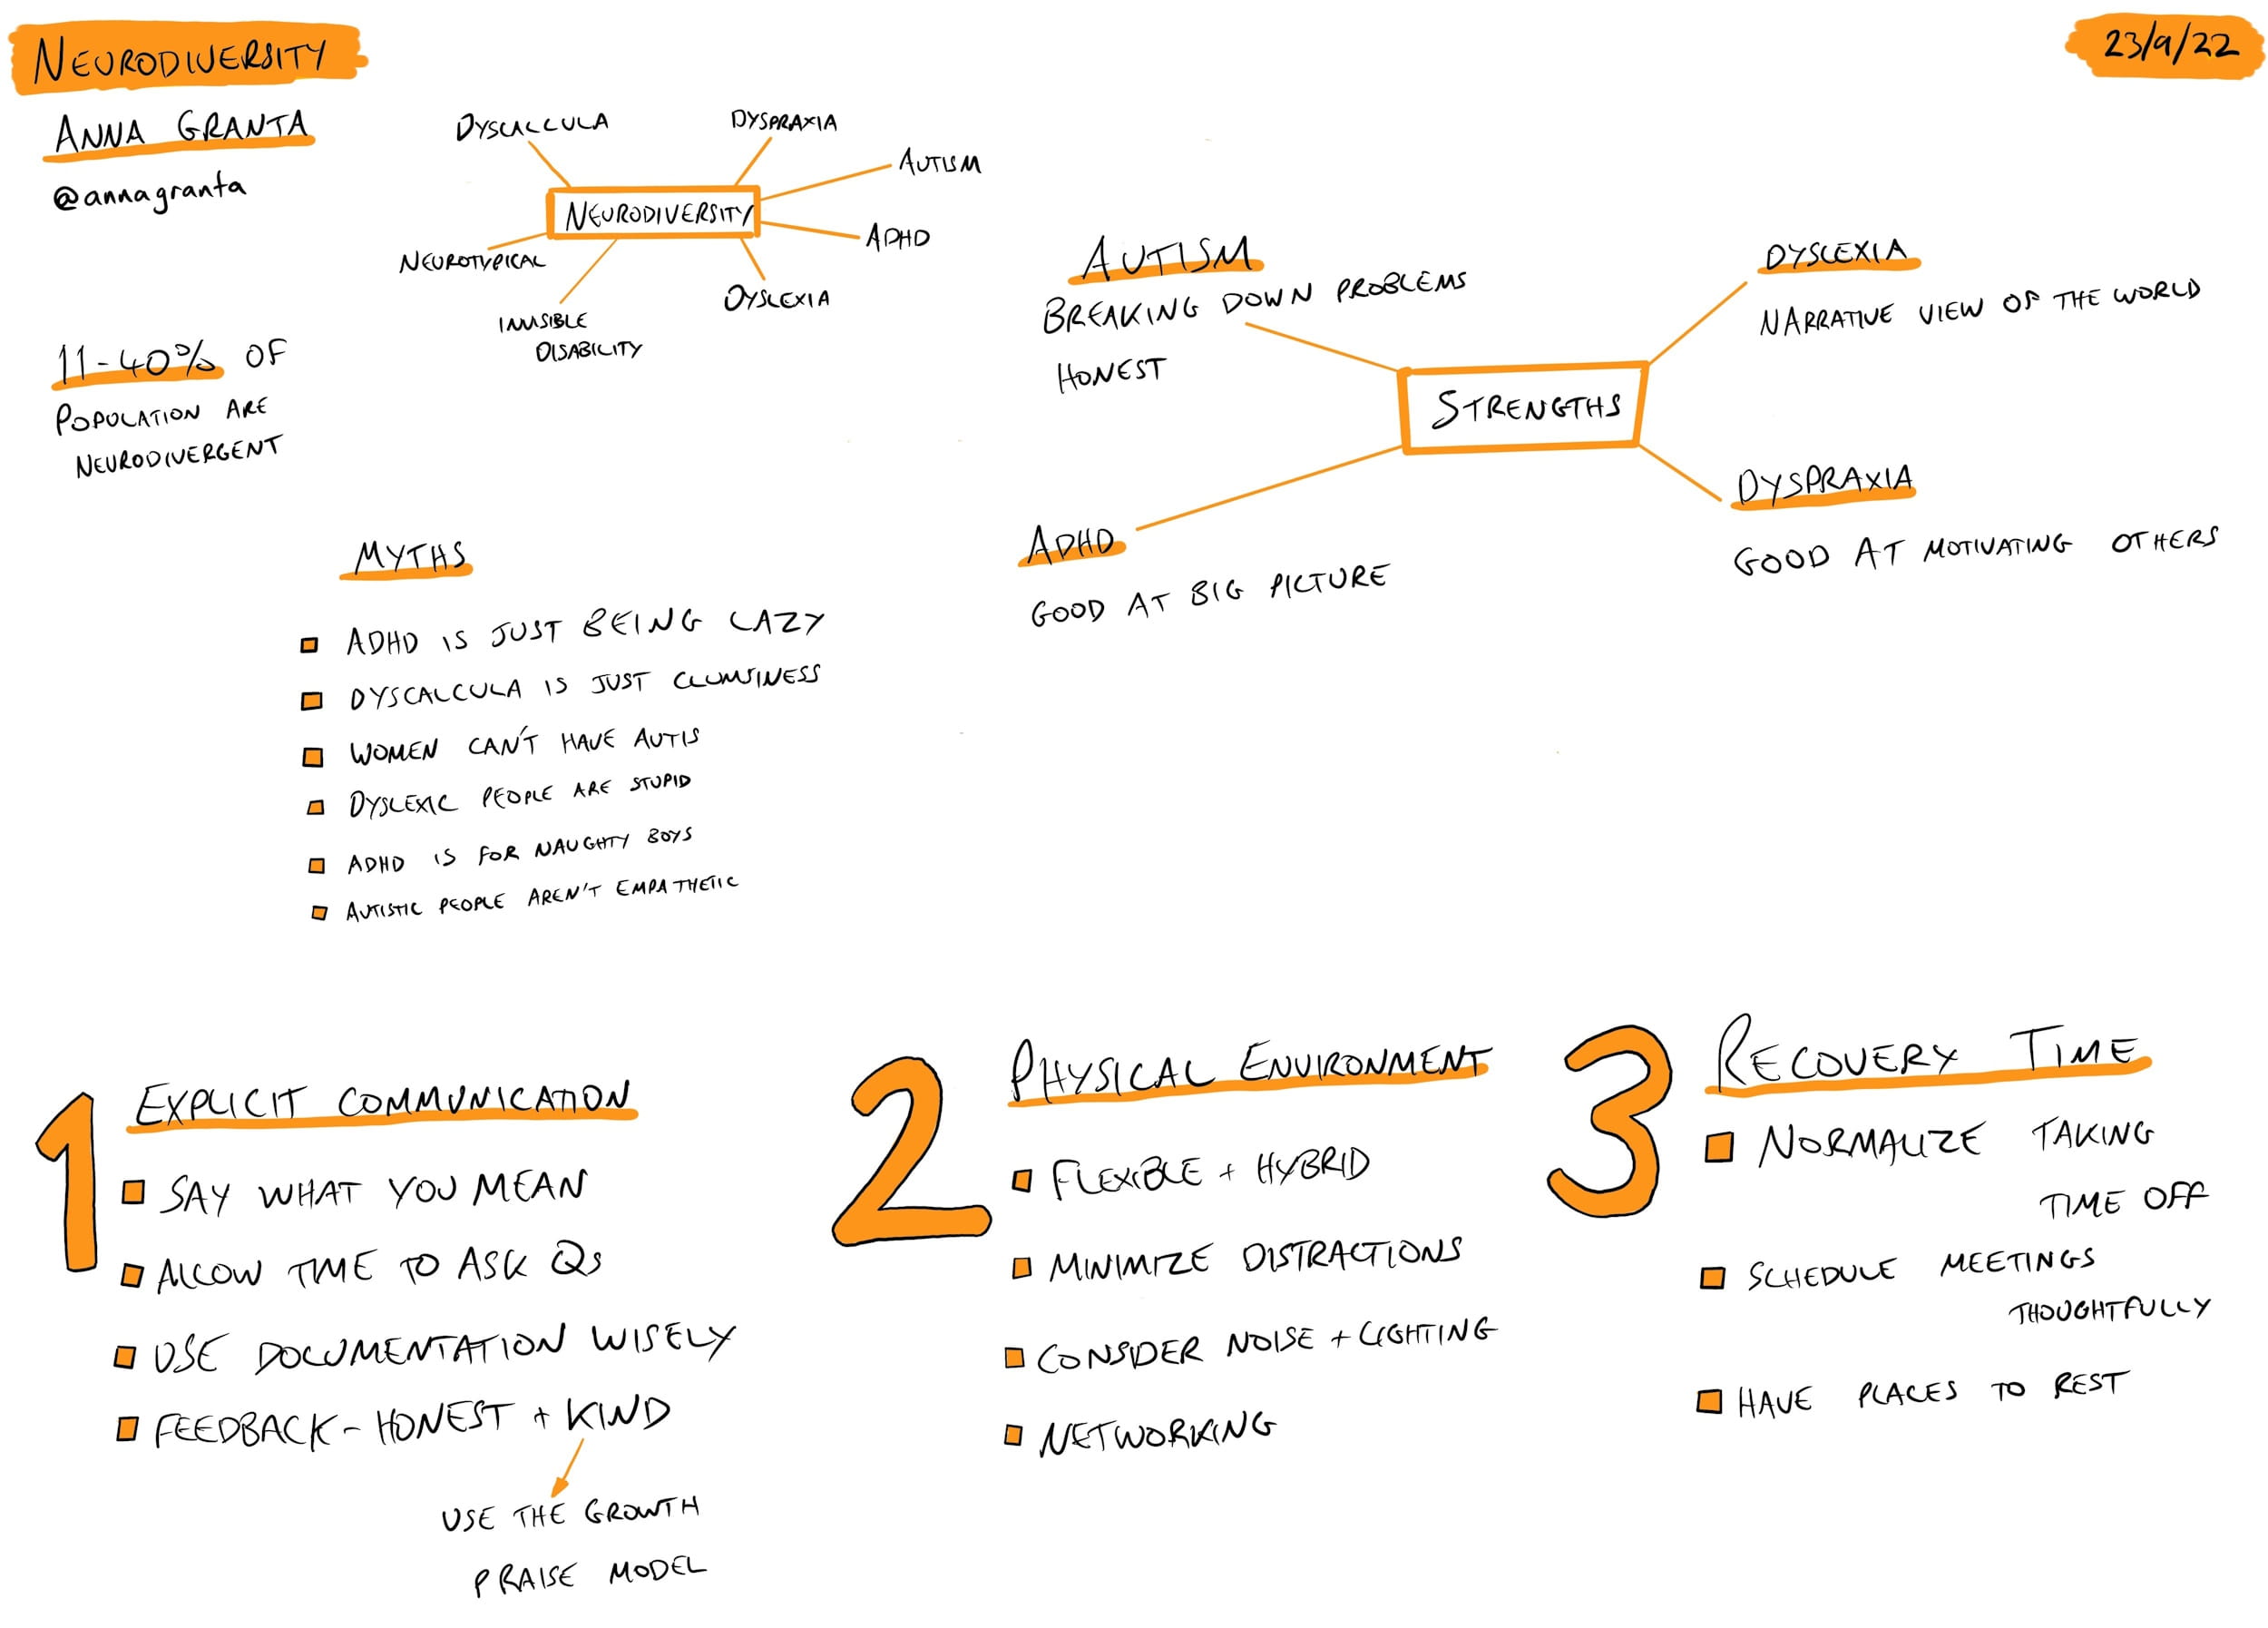 NEURODIVERSITY
23/9/22
ANNA GRANTA
@annagranta
DYSCALCULA
DYSPRAXIA
AUTISM
NEURODIVERSITY
ADHD
NEUROTYPICAL
DYSLEXIA
INVISIBLE
DISABILITY
11-40% OF
POPULATION ARE
NEURODIVERGENT
AUTISM
BREAKING DOWN PROBLEMS
HONEST
DYSLEXIA
NARRATIVE VIEW OF THE WORLD
STRENGTHS
DYSPRAXIA
GOOD AT MOTIVATING OTHERS
ADHD
GOOD AT BIG PICTURE
MYTHS
ADHD IS JUST BEING LAZY
DYSCALCULA IS JUST CLUMSINESS
WOMEN CAN'T HAVE AUTIS
DYSLEXIC PEOPLE ARE STUPID
ADHD IS FOR NAUGHTY BOYS
AUTISTIC PEOPLE AREN'T EMPATHETIC
1 EXPLICIT COMMUNICATION
SAY WHAT YOU MEAN
ALLOW TIME TO ASK QS
USE DOCUMENTATION WISELY
FEEDBACK - HONEST + KIND
USE THE GROWTH
PRAISE MODEL
2 PHYSICAL ENVIRONMENT
FLEXIBLE + HYBRID
MINIMIZE DISTRACTIONS
CONSIDER NOISE + LIGHTING
NETWORKING
3 RECOVERY TIME
NORMALIZE TAKING
TIME OFF
SCHEDULE MEETINGS
THOUGHTFULLY
HAVE PLACES TO REST